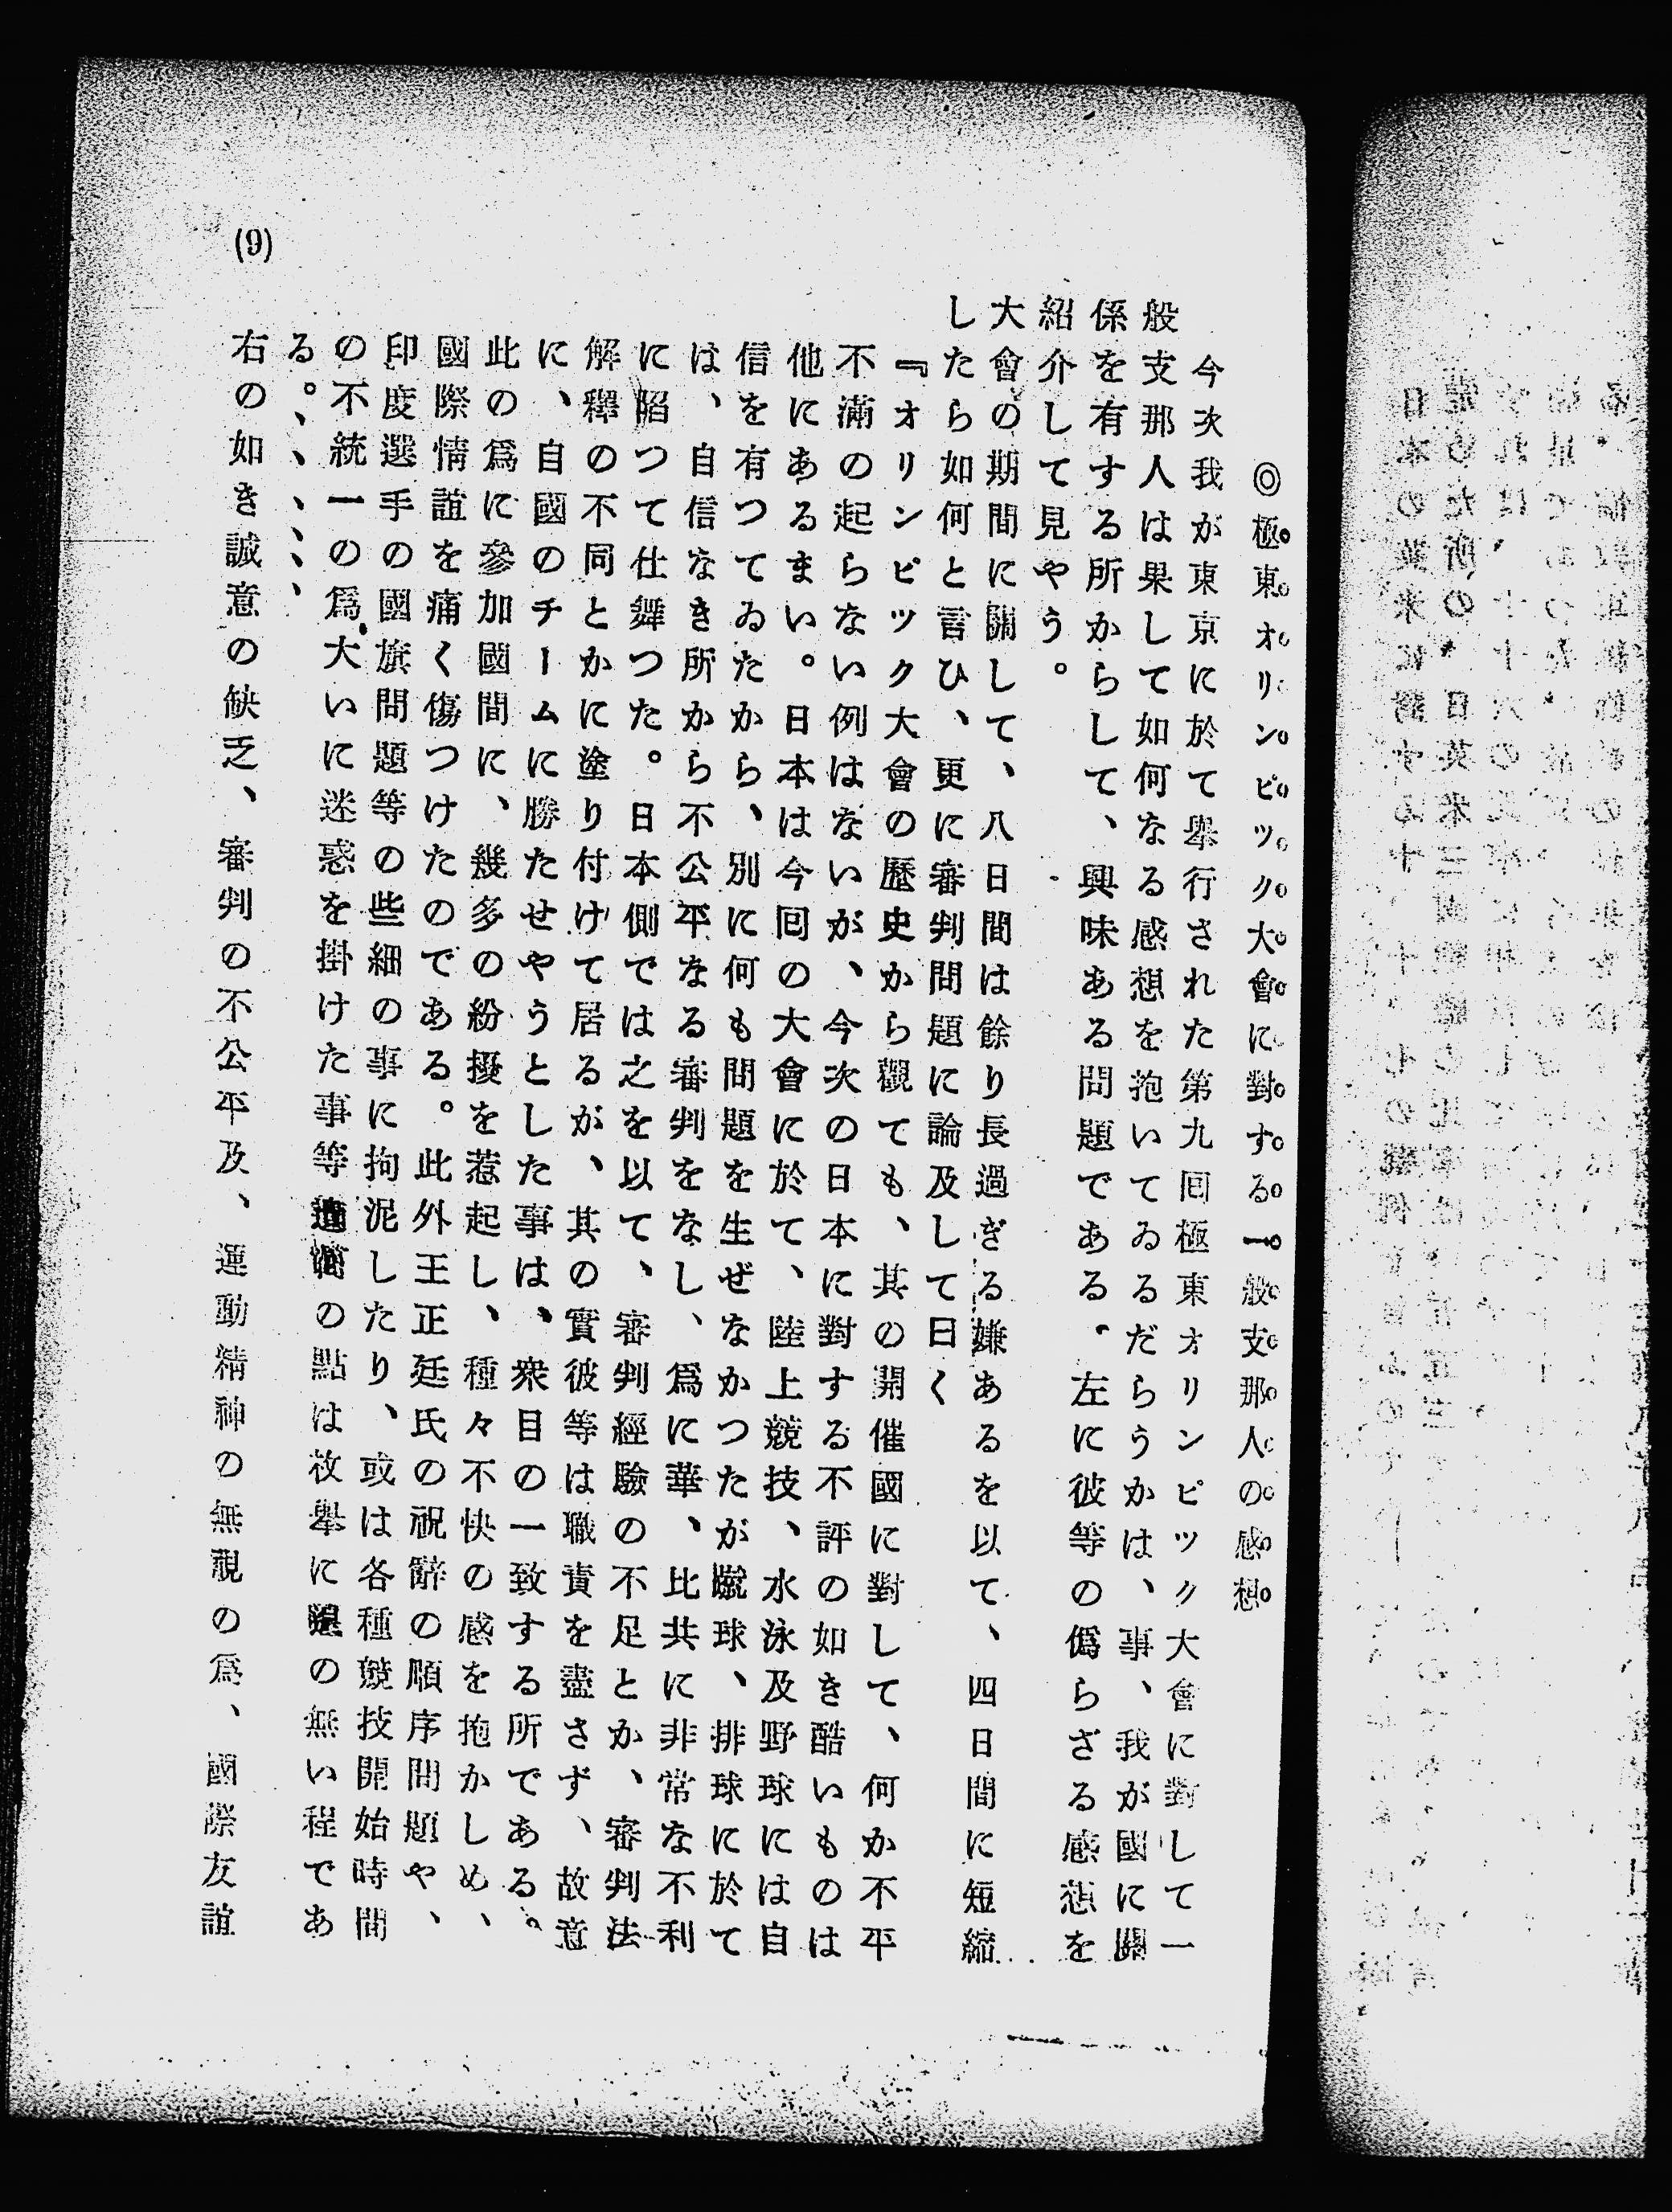 ◎極東オリンピック大會に對する一般支那人の感想
今次我が東京に於て擧行された第九囘極東オリンピック大會に對して一
般支那人は果して如何なる感想を抱いてゐるだらうかは、事、我が國に關
係を有する所からして、興味ある問題である。左に彼等の僞らざる感想を
紹介して見やう。
大會の期間に關して、八日間は餘り長過ぎる嫌あるを以て、四日間に短縮
したら如何と言ひ、更に審判問題に論及して曰く
『オリンピック大會の歷史から觀ても、其の開催國に對して、何か不平
不滿の起らない例はないが、今次の日本に對する不評の如き酷いものは
他にあるまい。日本は今囘の大會に於て、陸上競技、水泳及野球には自
信を有つてゐたから、別に何も問題を生ぜなかつたが蹴球、排球に於て
は、自信なき所から不公平なる審判をなし、爲に華、比共に非常な不利
に陷つて仕舞つた。日本側では之を以て、審判經驗の不足とか、審判法
解釋の不同とかに塗り付けて居るが、其の實彼等は職責を盡さず、故意
に、自國のチームに勝たせやうとした事は、衆目の一致する所である。
此の爲に參加國間に、幾多の紛擾を惹起し、種々不快の感を抱かしめ、
國際情誼を痛く傷つけたのである。此外王正廷氏の祝辭の順序問題や、
印度選手の國旗問題等の些細の事に拘泥したり、或は各種競技開始時間
の不統一の爲大いに迷惑を掛けた事等の點は枚擧に の無い程であ
る。、、、、、
右の如き誠意の缺乏、審判の不公平及、運動精神の無視の爲、國際友誼
(9)